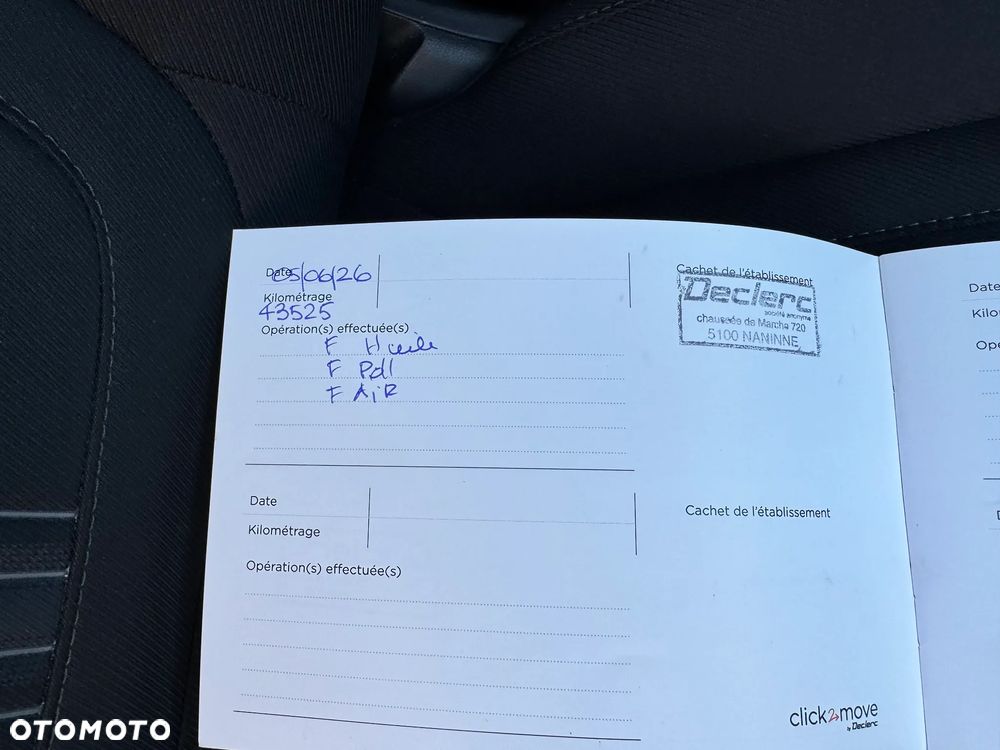 Date 05/06/26
Kilométrage
43525
Opération(s) effectuée(s)
F Huile
F Pdl
F AiR
Cachet de l'établissement
Declerc
société anonyme
chaussée de Marche 720
5100 NANINNE
Date
Kilométrage
Opération(s) effectuée(s)
Cachet de l'établissement
click2move
by Declerc
Date
Kilo
Opé
D
OTOMOTO